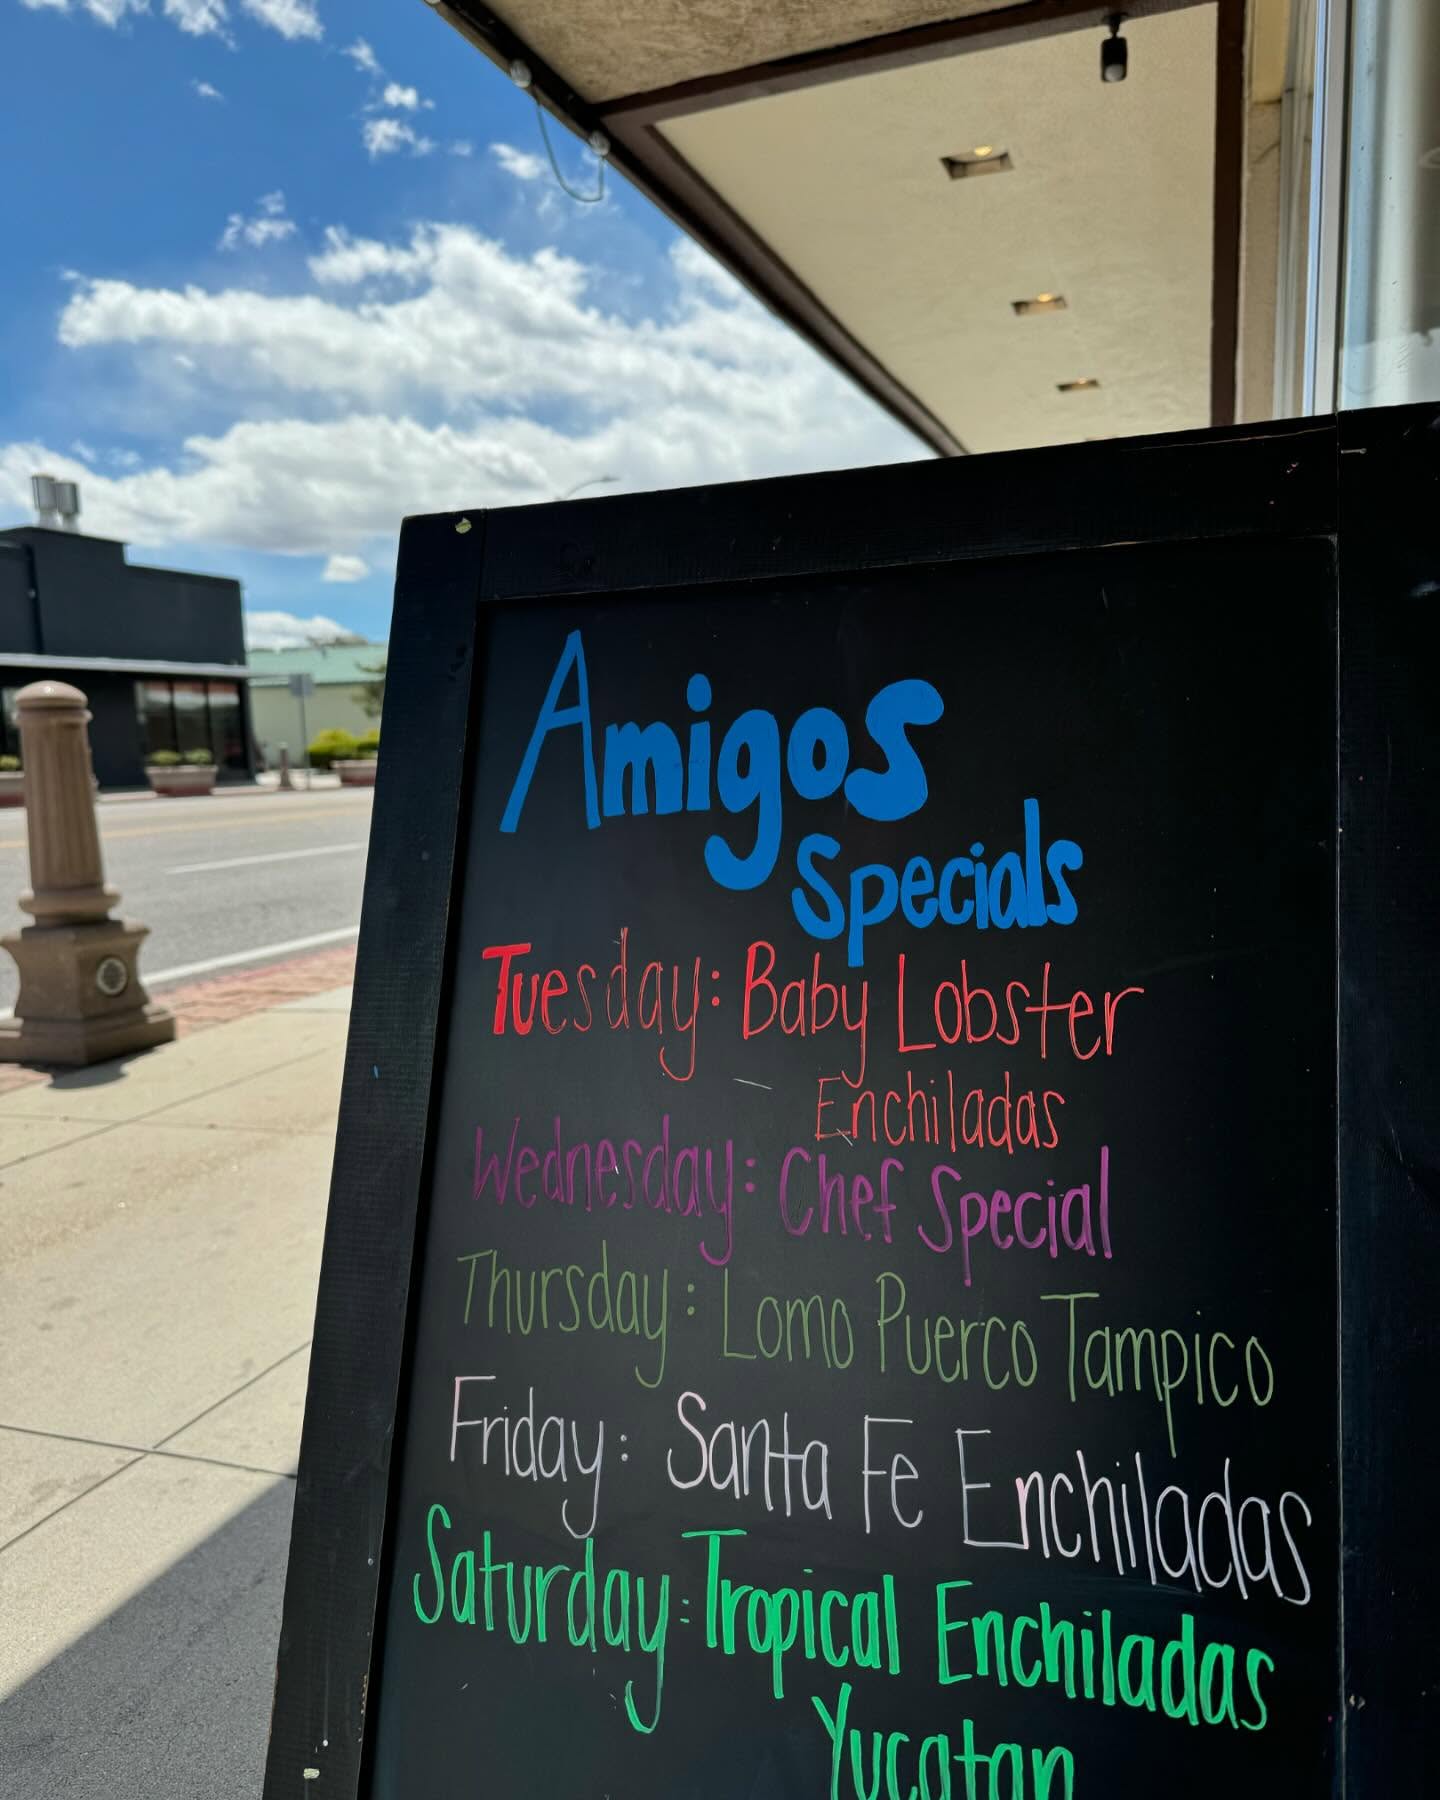 Amigos
Specials
Tuesday: Baby Lobster
Enchiladas
Wednesday: Chef Special
Thursday: Lomo Puerco Tampico
Friday: Santa Fe Enchiladas
Saturday: Tropical Enchiladas
Yucatan